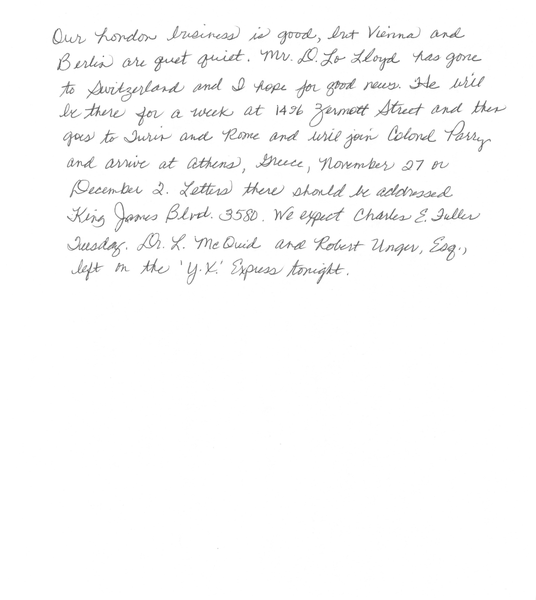 Our London business is good, but Vienna and
Berlin are quet quiet. Mr. D. Lo Lloyd has gone
to Switzerland and I hope for good news. He will
be there for a week at 1496 Zermott Street and then
goes to Turin and Rome and will join Colonel Parry
and arrive at Athens, Greece, November 27 or
December 2. Letters there should be addressed
King James Blvd. 3580. We expect Charles E. Fuller
Tuesday. Dr. L. McQuid and Robert Unger, Esq.,
left on the 'Y.X.' Express tonight.